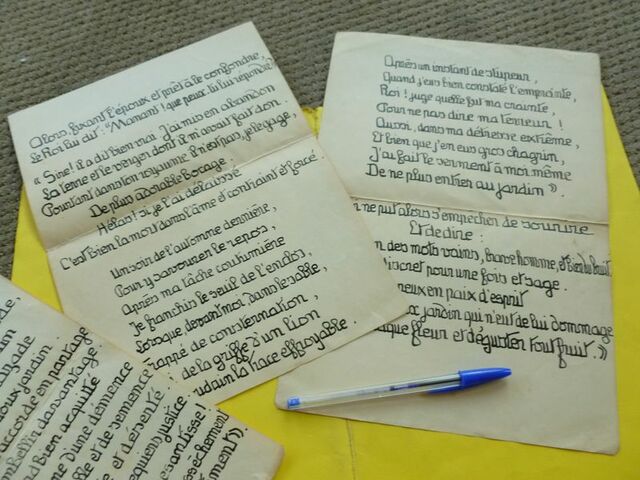 Alors fixant l'époux et prêt à le confondre,
Le Roi lui dit : "Manant ! que peux-tu lui répondre?
« Sire ! il a dit bien vrai J'ai mis en abandon
La terre et le verger dont il m'avait fait don.
Pourtant dans ton royaume, il n'est pas, je le gage,
De plus adorable bocage,
Hélas ! si je l'ai délaissé
C'est bien la mort dans l'âme et contraint et forcé
Un soir de l'automne dernière,
Pour y savourer le repos,
Après ma tâche coutumière
Je franchis le seuil de l'enclos,
Lorsque devant moi, dans le sable,
Frappé de consternation,
de la griffe d'un lion
la trace effroyable.
Après un instant de stupeur,
Quand j'eus bien constaté l'empreinte,
Roi ! juge quelle fut ma crainte,
Pour ne pas dire ma terreur !
Aussi, dans ma détresse extrême,
Et bien que j'en eus gros chagrin,
J'ai fait le serment à moi même
De ne plus entrer au jardin ».
ne put alors s'empêcher de sourire
Et de dire :
des mots vains, brave homme, et bien du bruit.
discret pour une fois et sage.
en paix d'esprit
jardin qui n'eut de lui dommage
fleur et déguster tout fruit. »
jardin
accorde en partage
davantage
bien acquitté
d'une clémence
et de semence
et d'équité
justice